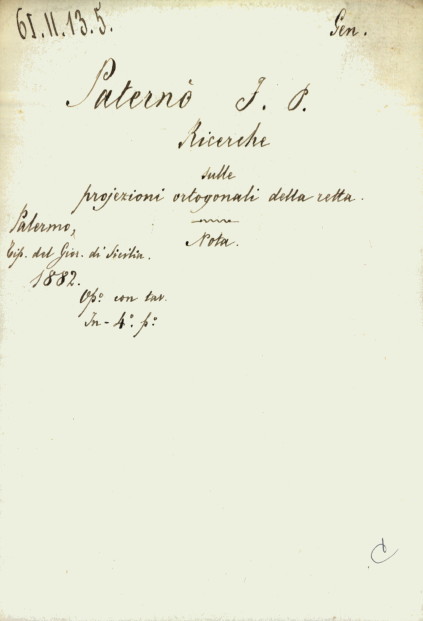 61.II.13.5.
Gen.
Paternò F. P.
Ricerche
sulle
projezioni ortogonali della retta.
Nota.
Palermo,
Tip. del Gior. di Sicilia.
1882.
Op.º con tav.
In-4.º p.º